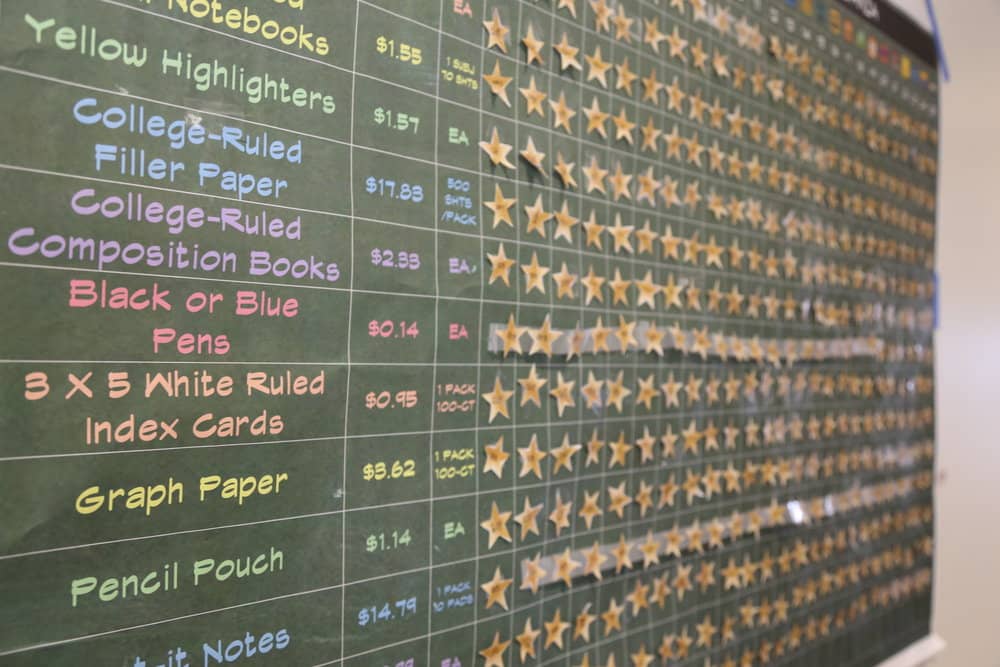 EA
Notebooks
$1.55
1 SUBJ
70 SHTS
Yellow Highlighters
$1.57
EA
College-Ruled
Filler Paper
$17.83
500
SHTS
/PACK
College-Ruled
Composition Books
$2.33
EA
Black or Blue
Pens
$0.14
EA
3 X 5 White Ruled
Index Cards
$0.95
1 PACK
100-CT
Graph Paper
$3.62
1 PACK
100-CT
Pencil Pouch
$1.14
EA
Notes
$14.79
1 PACK
10 PADS
EA